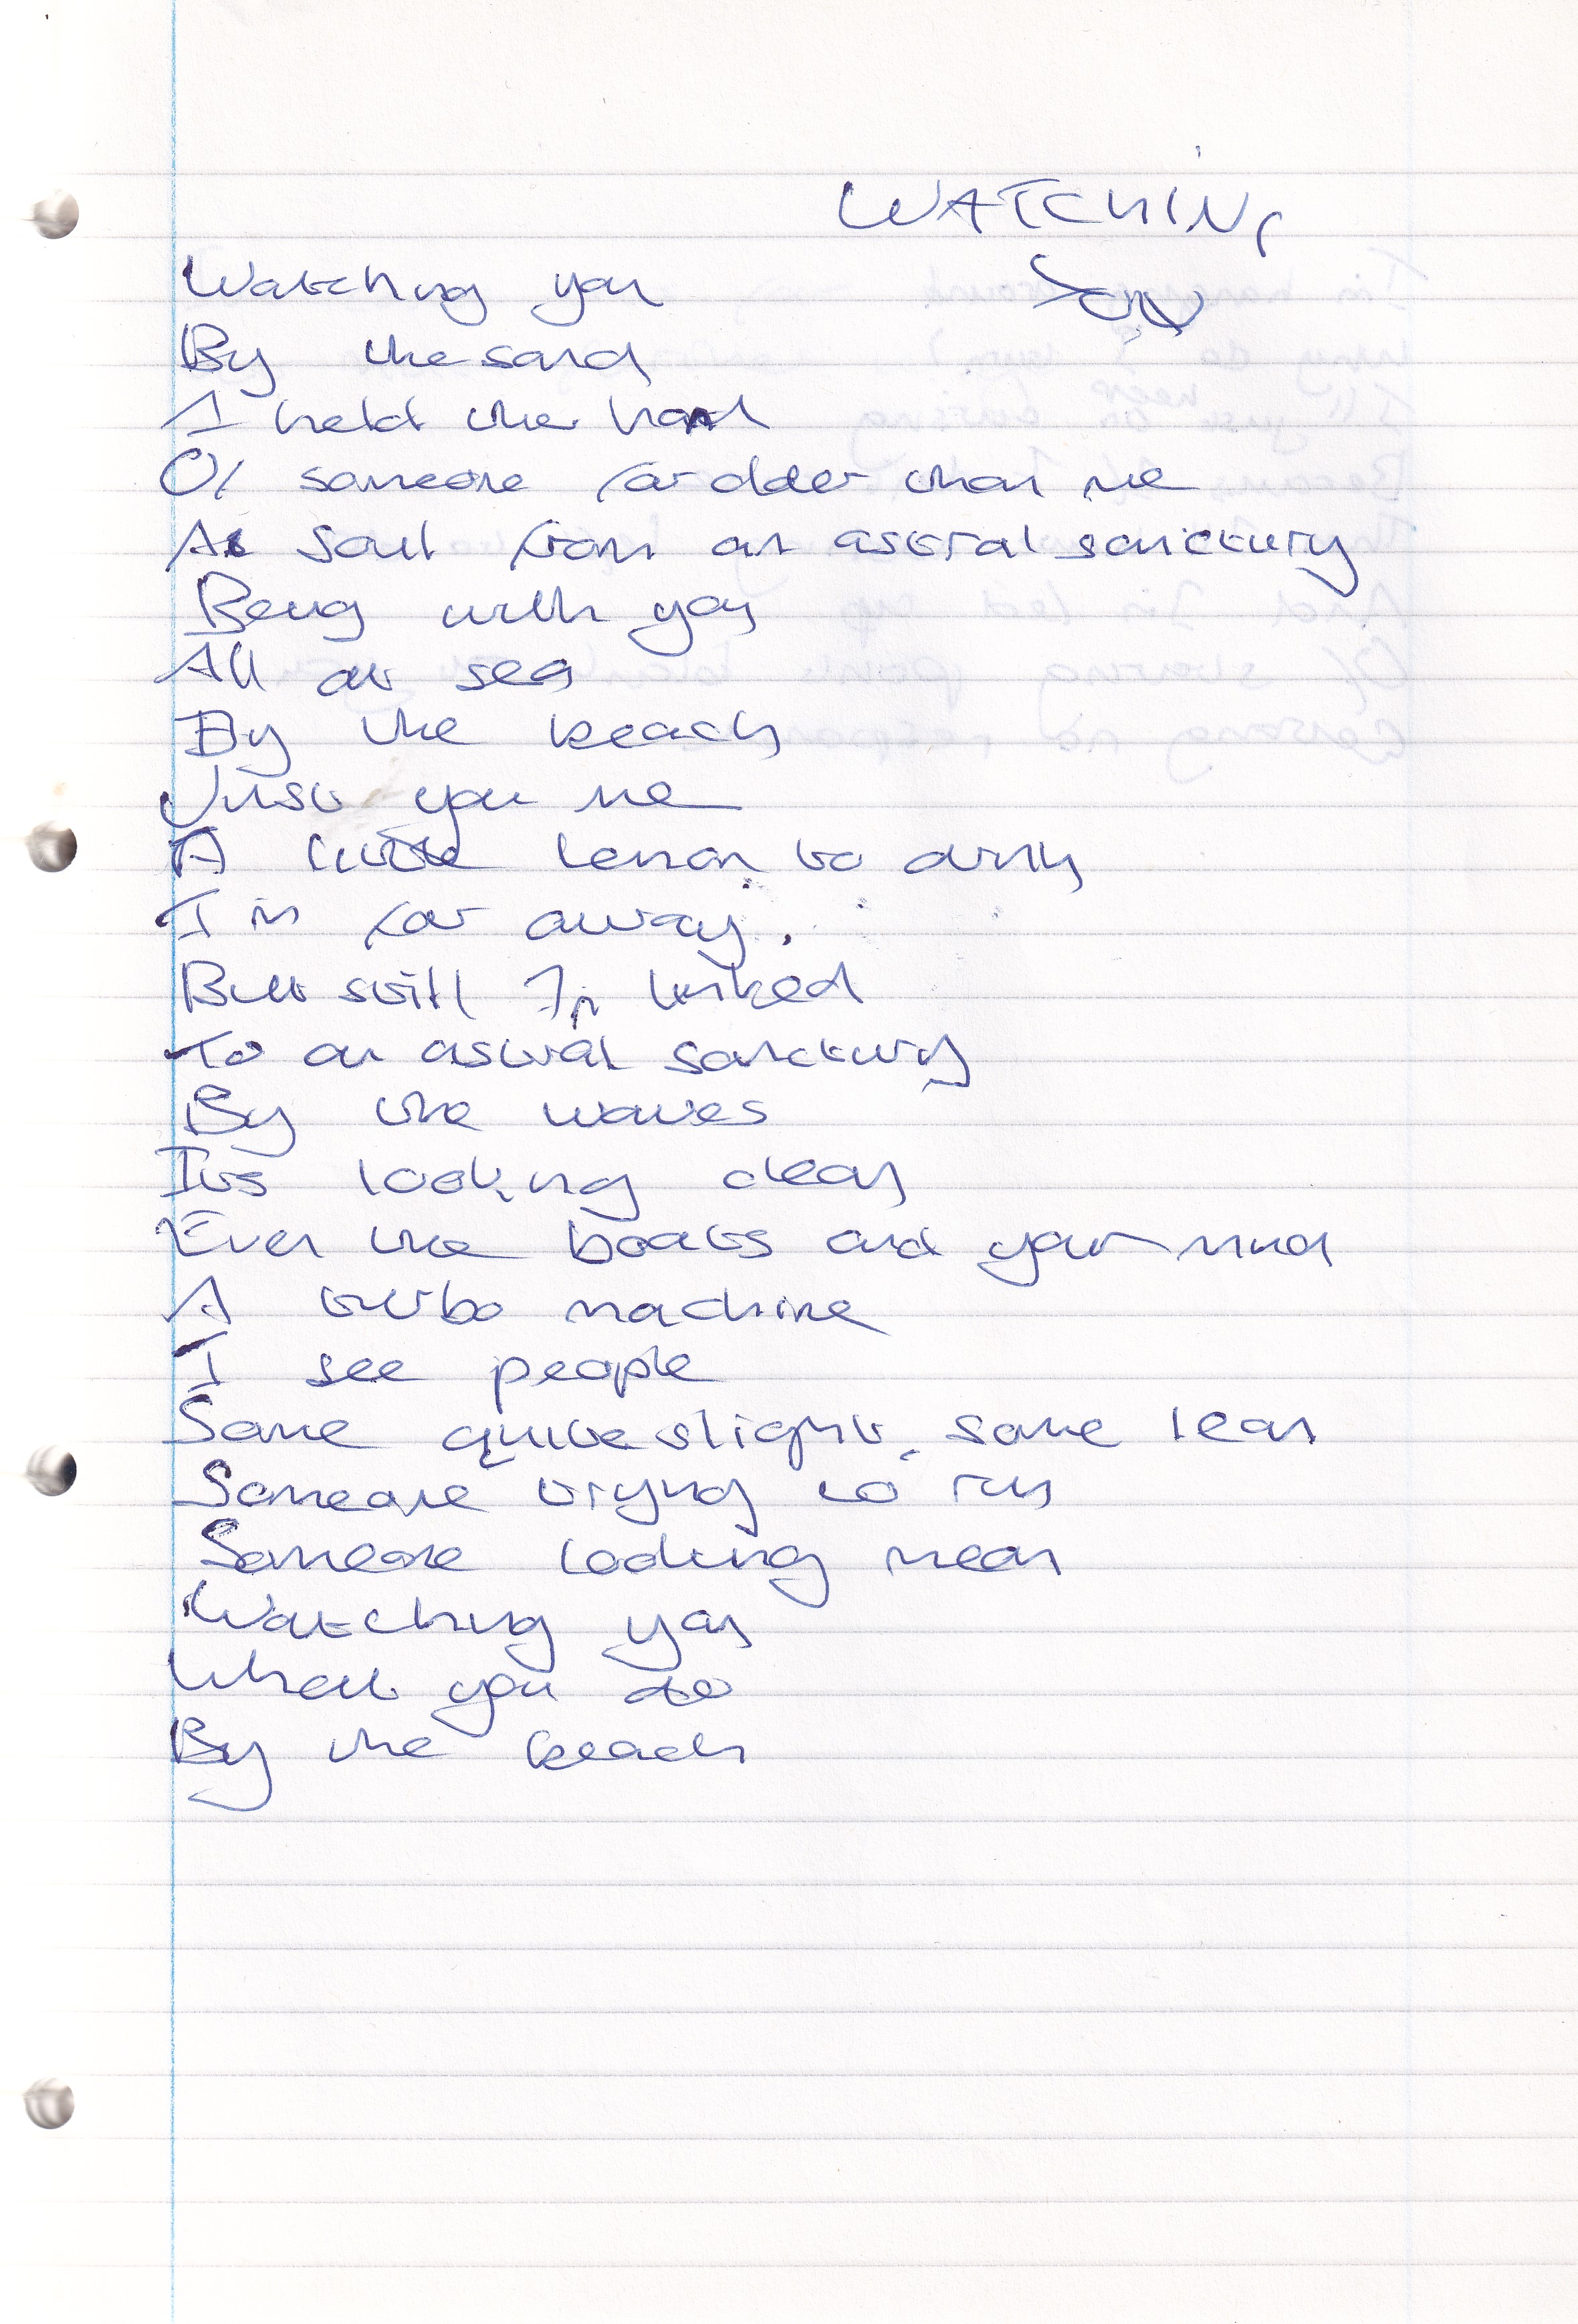 WATCHING
Watching you
By the sand
I held the hand
Of someone far older than me
A soul from an astral sanctury
Being with you
All at sea
By the beach
Just you me
A little lemon to drink
I'm far away.
But still I'm linked
To an astral sanctury
By the waves
Its looking clean
Even the boats and your mind
A turbo machine
I see people
Some quite slight, some lean
Someone trying to run
Someone looking mean
Watching you
What you do
By the beach